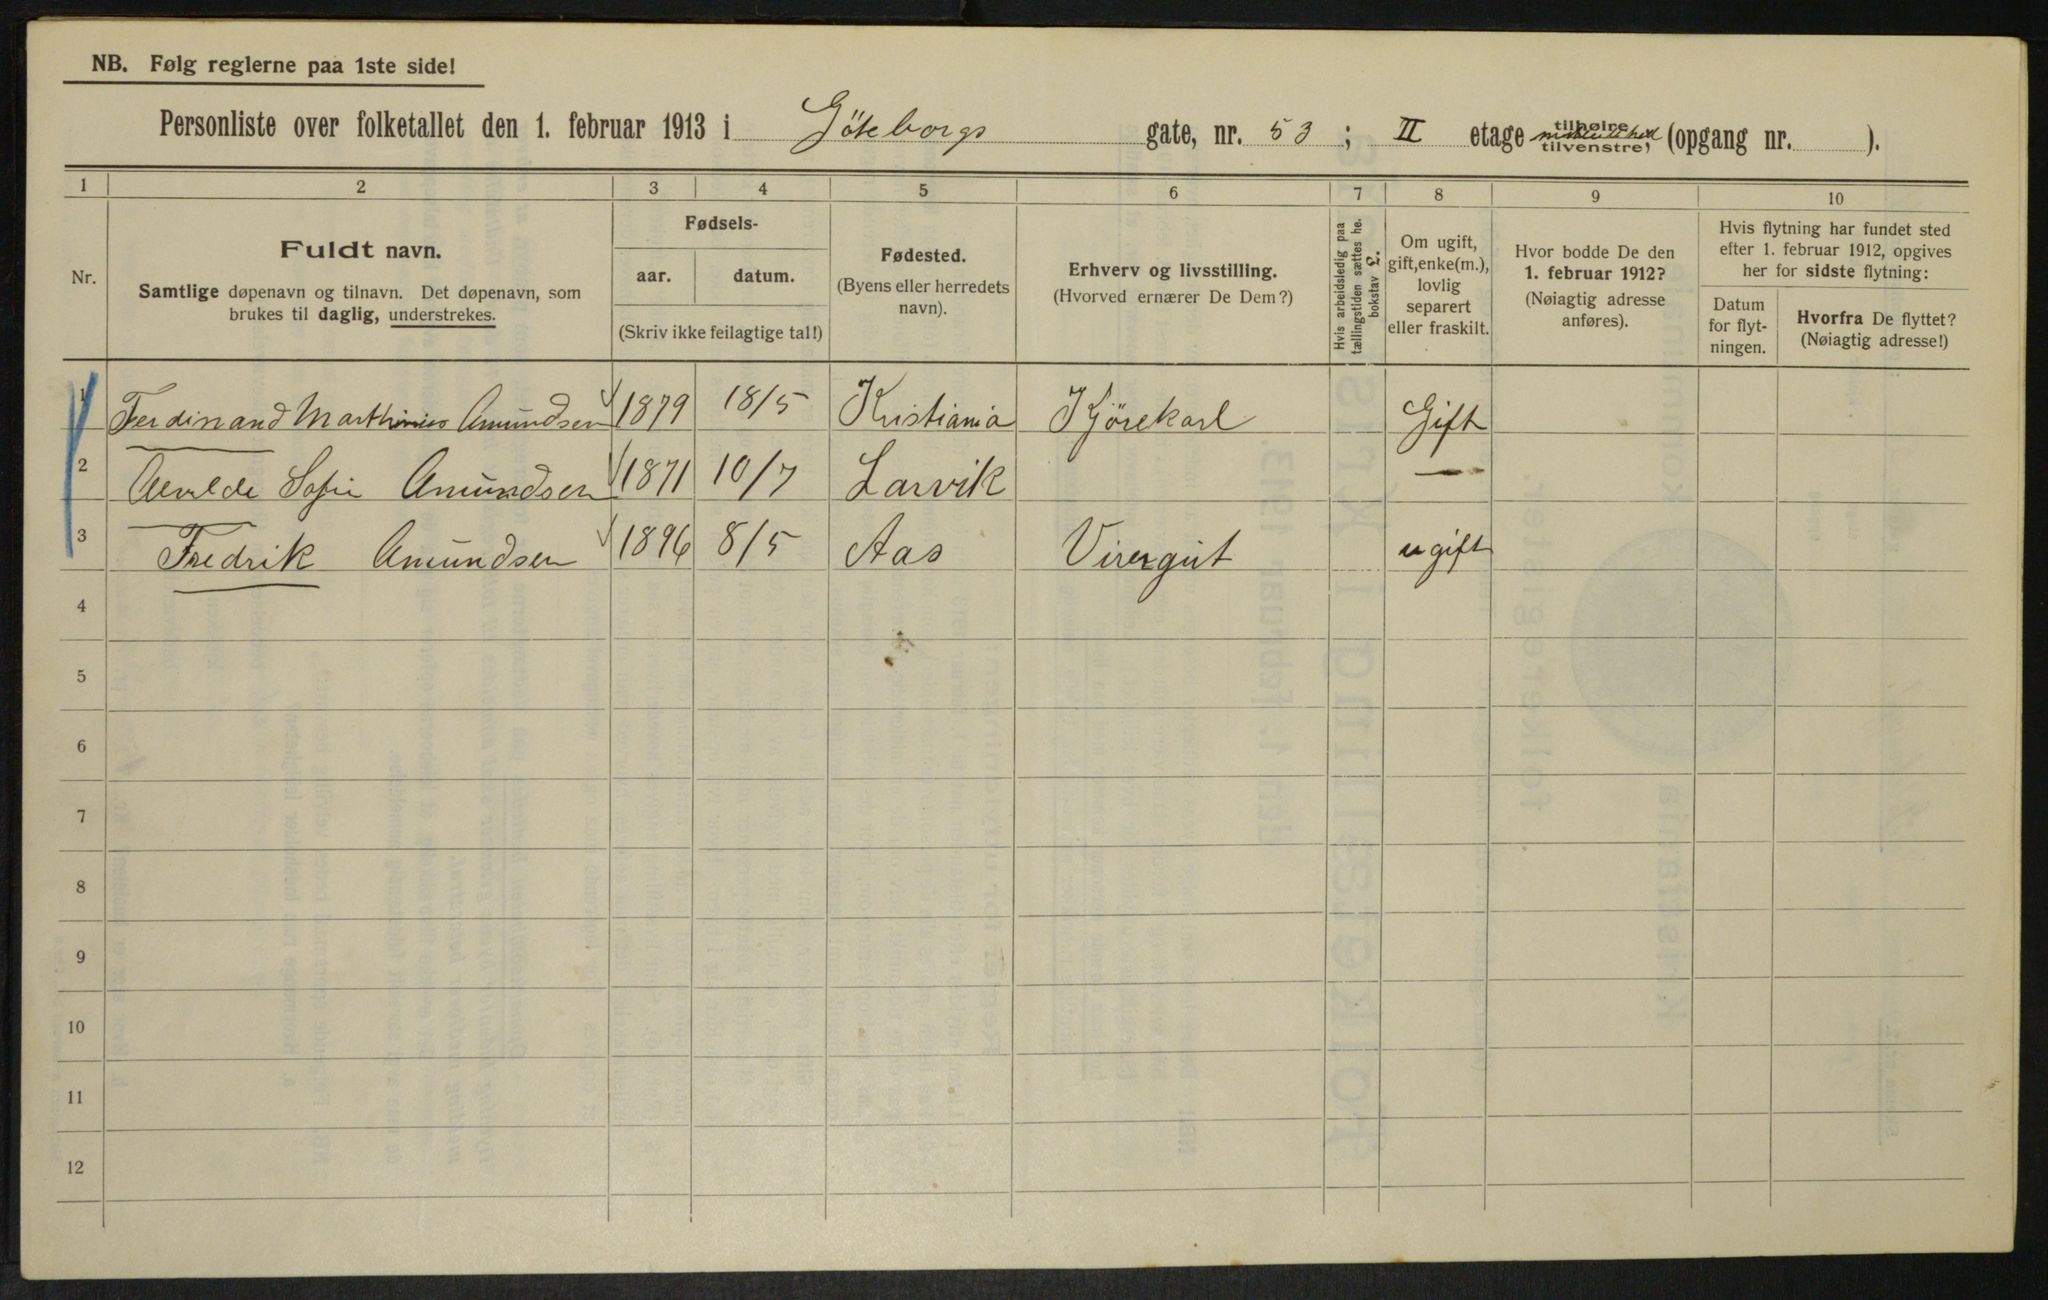 NB. Følg reglerne paa 1ste side!
Personliste over folketallet den 1. februar 1913 i Göteborgs gate, nr. 53; II etage tilhøire tilvenstre, (opgang nr. ).
1 2 3 4 5 6 7 8 9 10
Nr.
Fuldt navn.
Samtlige døpenavn og tilnavn. Det døpenavn, som
brukes til daglig, understrekes.
Fødsels-
aar. datum.
(Skriv ikke feilagtige tal!)
Fødested.
(Byens eller herredets
navn).
Erhverv og livsstilling.
(Hvorved ernærer De Dem?)
Hvis arbeidsledig paa
tællingstiden sættes he.
bokstav L.
Om ugift,
gift, enke(m.),
lovlig
separert
eller fraskilt.
Hvor bodde De den
1. februar 1912?
(Nøiagtig adresse
anføres).
Hvis flytning har fundet sted
efter 1. februar 1912, opgives
her for sidste flytning:
Datum
for flyt-
ningen.
Hvorfra De flyttet?
(Nøiagtig adresse!)
1 Ferdinand Marthinius Amundsen 1879 18/5 Kristiania Kjörekarl Gift
2 Sofie Amundsen 1871 10/7 Larvik —
3 Fredrik Amundsen 1896 8/5 Aas Visergut ugift
4
5
6
7
8
9
10
11
12